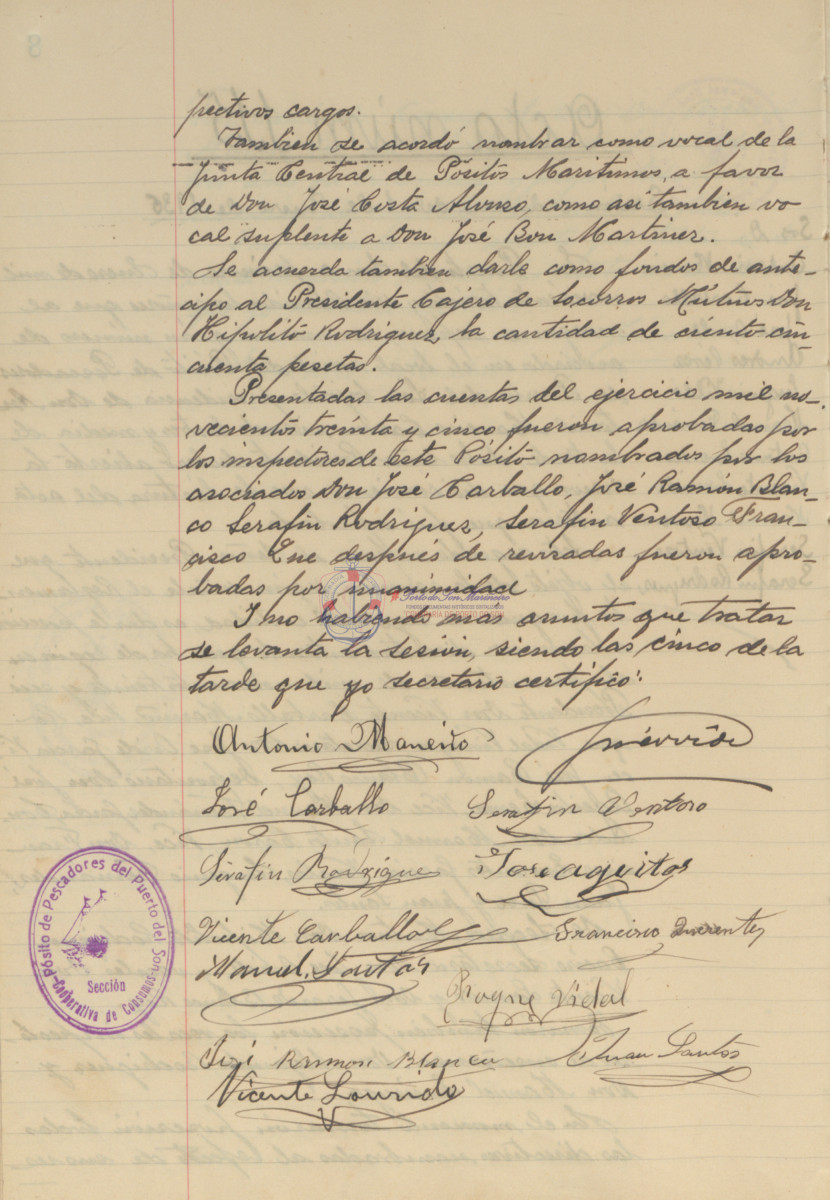 pectivos cargos.
Tambien se acordó nombrar como vocal de la
Junta Central de Pósitos Maritimos, a favor
de Don José Costa Alonso, como asi tambien vo
cal suplente a Don José Bou Martinez.
Se acuerda tambien darle como fondos de ante-
cipo al Presidente Cajero de Socorros Mútuos Don
Hipolitó Rodriguez, la cantidad de ciento cin
cuenta pesetas.
Presentadas las cuentas del ejercicio mil no-
vecientos treinta y cinco fueron aprobadas por
los inspectores de este Pósito nombrados por los
asociados Don José Carballo, José Ramón Blan-
co Serafin Rodriguez, Serafin Ventoso Fran-
cisco Que después de revisadas fueron apro-
badas por unanimidad
I no habiendo mas asuntos que tratar
se levanta la sesión, siendo las cinco de la
tarde que yo secretario certifico:
Antonio Maneiro
José Carballo Serafin Ventoso
Serafin Rodrigue
Vicente Carballo Francisco
Manuel Santos
Roque Vidal
José Ramon Blanco Juan Santos
Vicente Lourido
Pósito de Pescadores del Puerto del Son
Sección
Cooperativa de Consumos
Porto do Son Marineiro